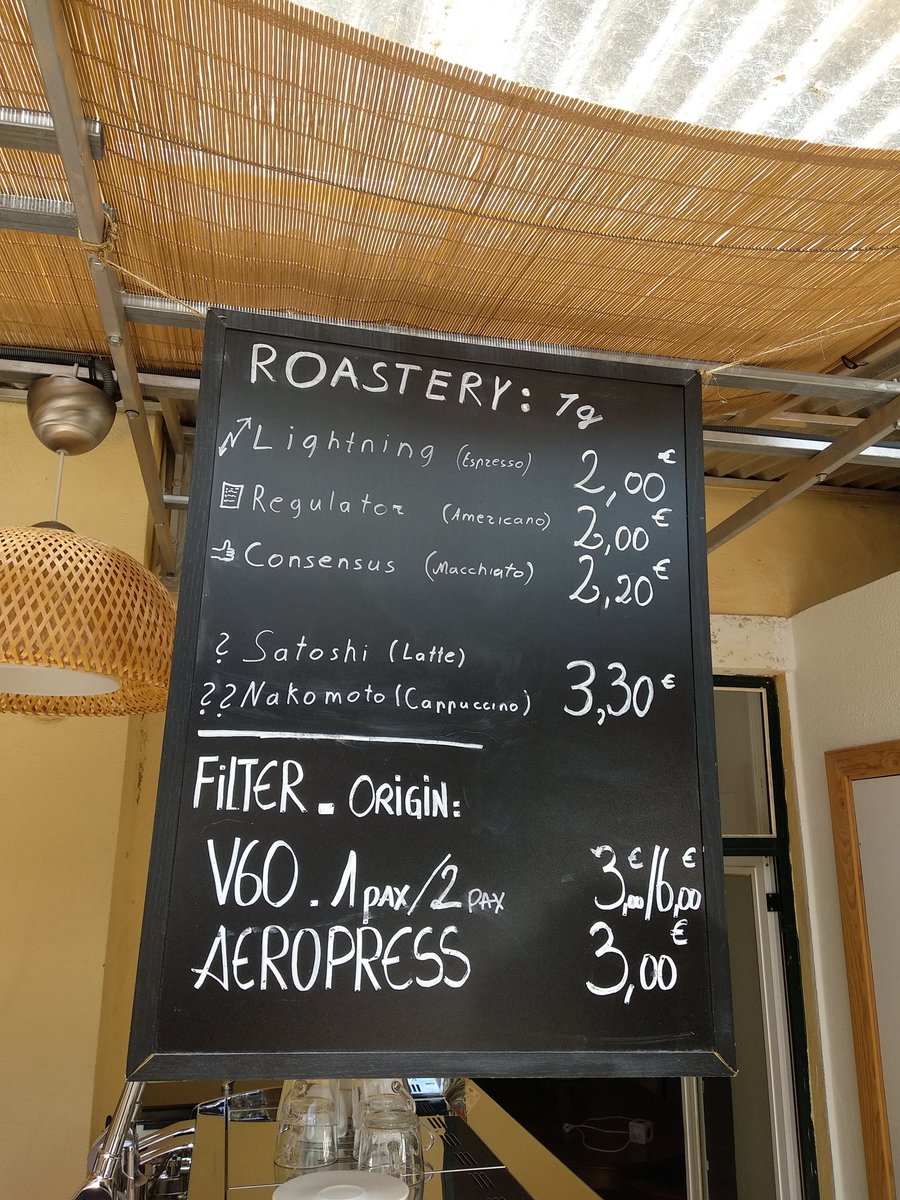 ROASTERY: 1g
Lightning (Espresso) 2,00€
Regulator (Americano) 2,00€
Consensus (Macchiato) 2,20€
? Satoshi (Latte)
?? Nakomoto (Cappuccino) 3,30€
FiLTER - ORiGiN:
V60 . 1 PAX/2 PAX 3,00€/6,00€
AEROPRESS 3,00€